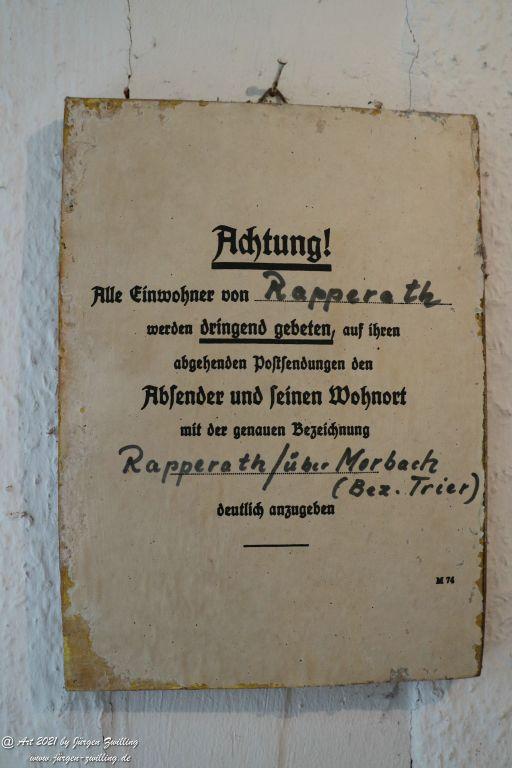 Achtung!
Alle Einwohner von Rapperath
werden dringend gebeten, auf ihren
abgehenden Postsendungen den
Absender und seinen Wohnort
mit der genauen Bezeichnung
Rapperath/über Morbach
(Bez. Trier)
deutlich anzugeben
M 74
@ Art 2021 by Jürgen Zwilling
www.jürgen-zwilling.de